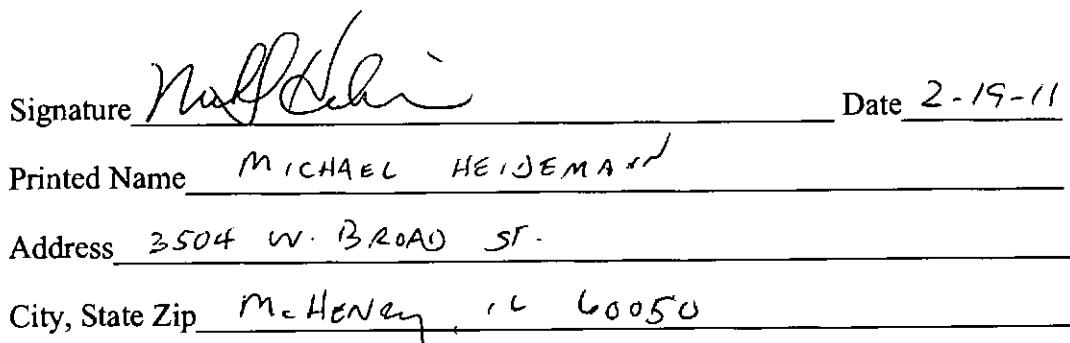 Signature Date 2-19-11
Printed Name MICHAEL HEIDEMANN
Address 3504 W. BROAD ST.
City, State Zip McHENRY, IL 60050